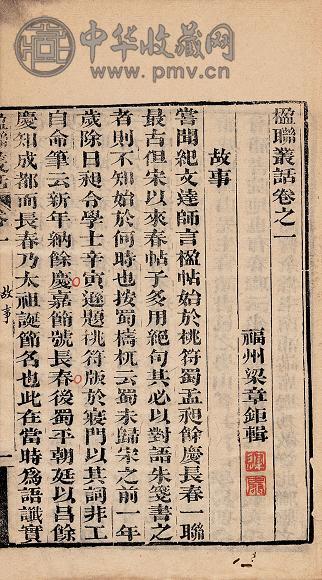 中华收藏网
www.pmv.cn
楹聯叢話卷之一
福州梁章鉅輯
故事
嘗聞紀文達師言楹帖始於桃符蜀孟昶餘慶長春一聯
最古但宋以來春帖子多用絕句其必以對語朱箋書之
者則不知始於何時也按蜀檮杌云蜀未歸宋之前一年
歲除日昶令學士辛寅遜題桃符版於寢門以其詞非工
自命筆云新年納餘慶嘉節號長春後蜀平朝廷以呂餘
慶知成都而長春乃太祖誕節名也此在當時爲語讖實
故事
一